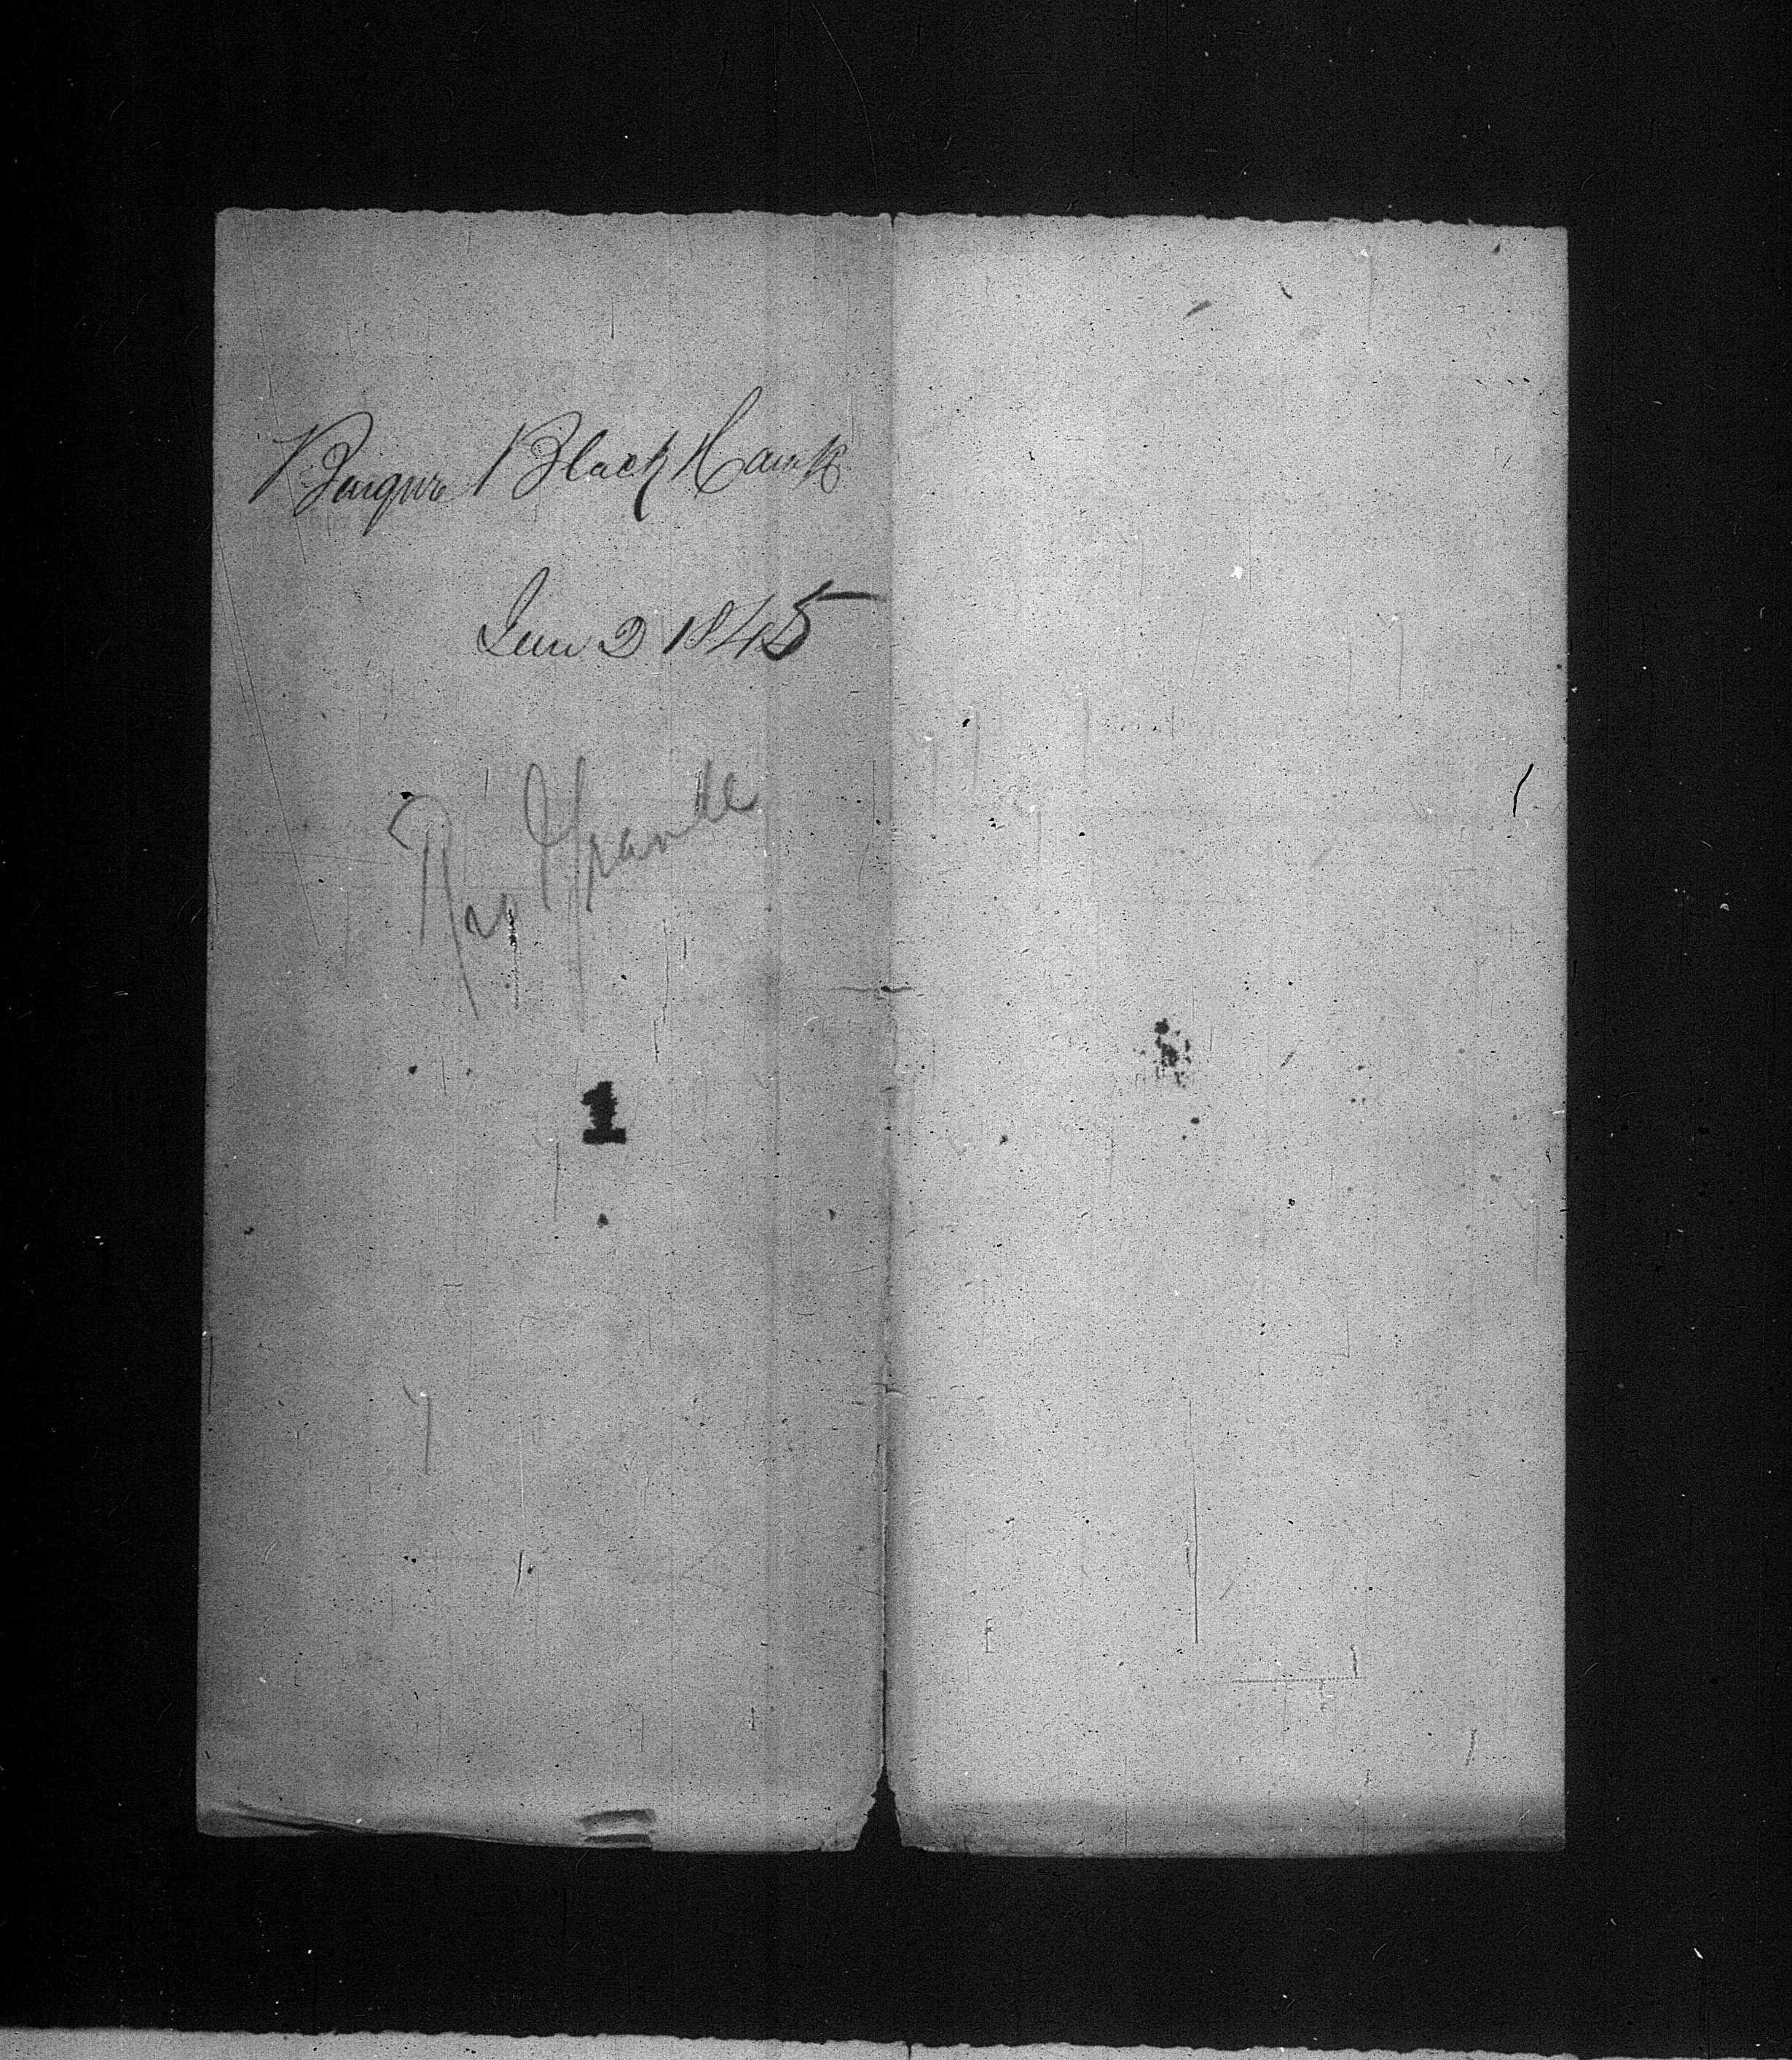 Barque Black Hawk
Jan 2 1845
Rio Grande
1